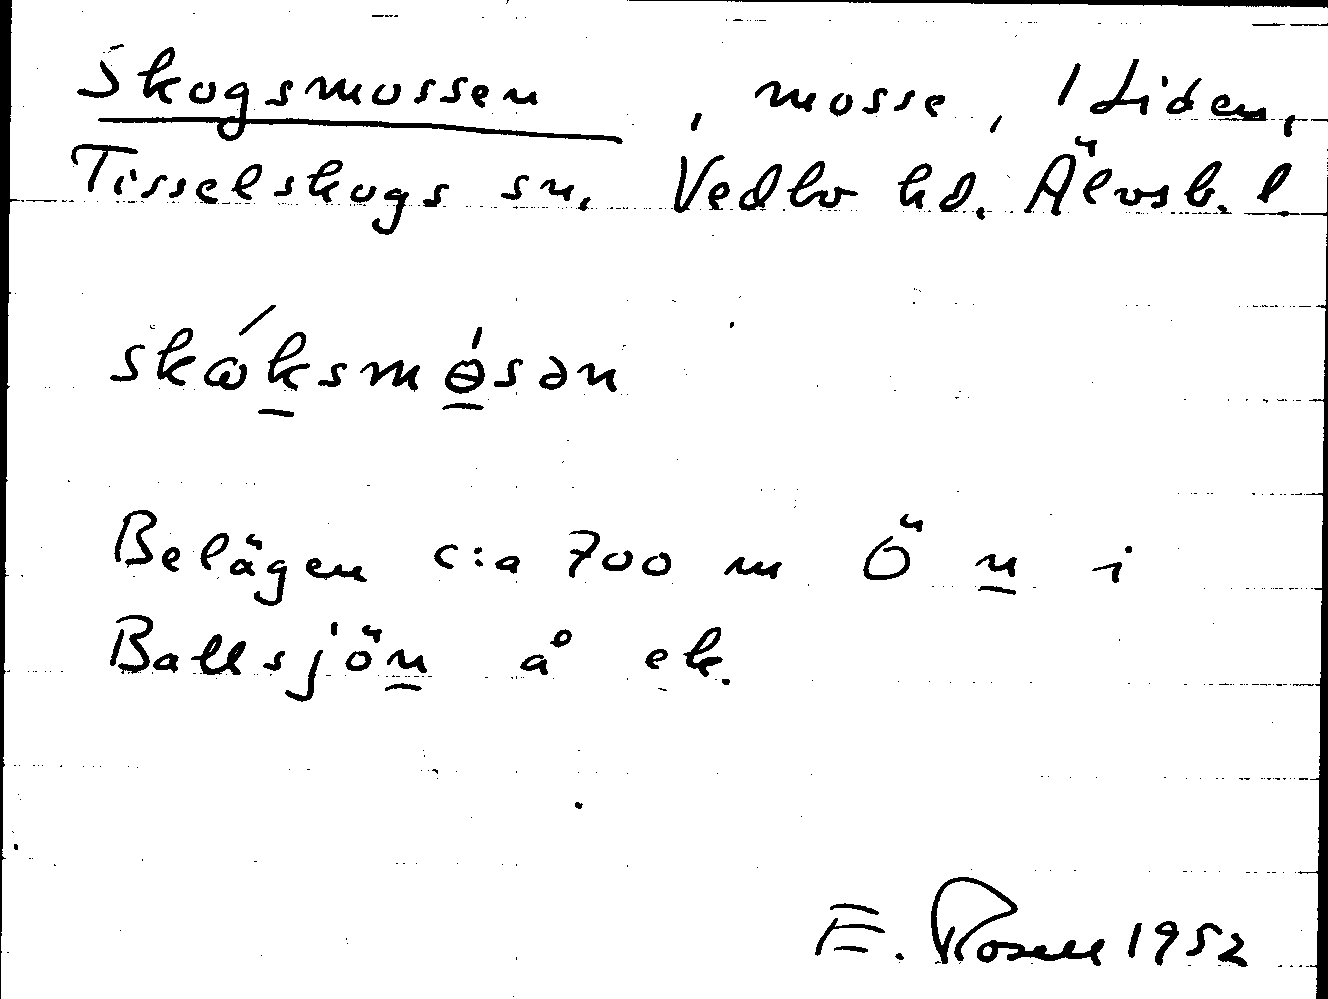 Skogsmossen, mosse, 1 Liden,
Tisselskogs sn. Vedbo hd. Älvsb. l.
skɷ́ksmɵ́sən
Belägen c:a 700 m Ö n i
Ballsjön å ek.
E. Rosell 1952